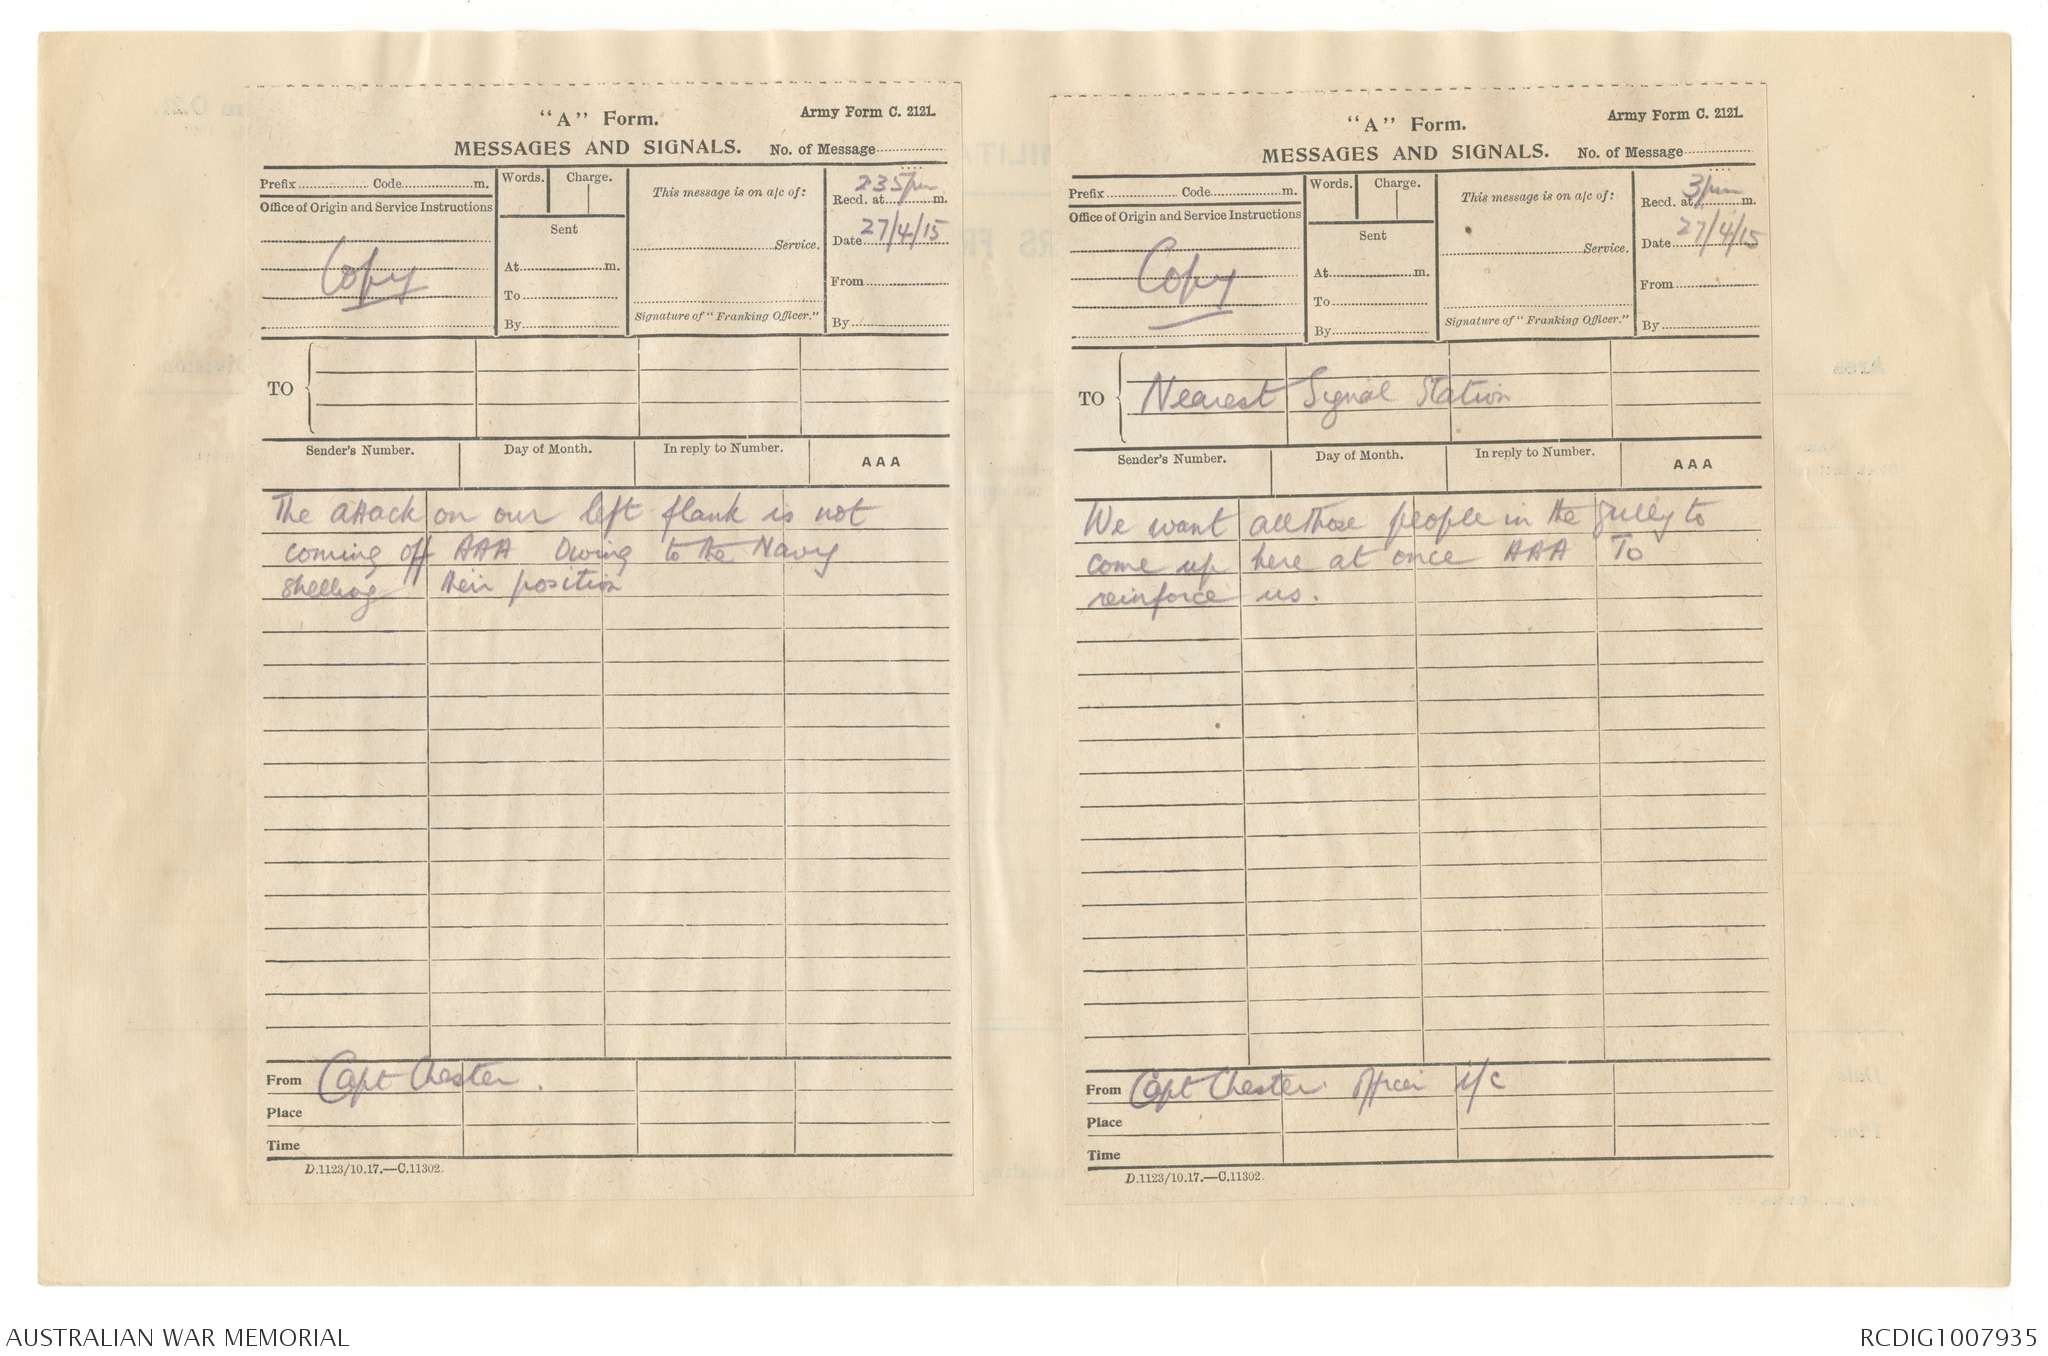 "A" Form.
Army Form C. 2121.
MESSAGES AND SIGNALS.
No. of Message
Prefix Code m.
Words. Charge.
This message is on a/c of:
235pm
Recd. at m.
Office of Origin and Service Instructions
Sent
Service.
27/4/15
Date
Copy
At m.
From
To
Signature of "Franking Officer."
By
By
TO
Sender's Number. Day of Month. In reply to Number. AAA
The attack on our left flank is not
coming off AAA Owing to the Navy
shelling their position
From Capt Chester.
Place
Time
D.1123/10.17.—C.11302.
"A" Form.
Army Form C. 2121.
MESSAGES AND SIGNALS.
No. of Message
Prefix Code m.
Words. Charge.
This message is on a/c of:
3pm
Recd. at m.
Office of Origin and Service Instructions
Sent
Service.
27/4/15
Date
Copy
At m.
From
To
Signature of "Franking Officer."
By
By
TO Nearest Signal Station
Sender's Number. Day of Month. In reply to Number. AAA
We want all those people in the gully to
come up here at once AAA To
reinforce us.
From Capt Chester. Officer i/c
Place
Time
D.1123/10.17.—C.11302.
AUSTRALIAN WAR MEMORIAL
RCDIG1007935